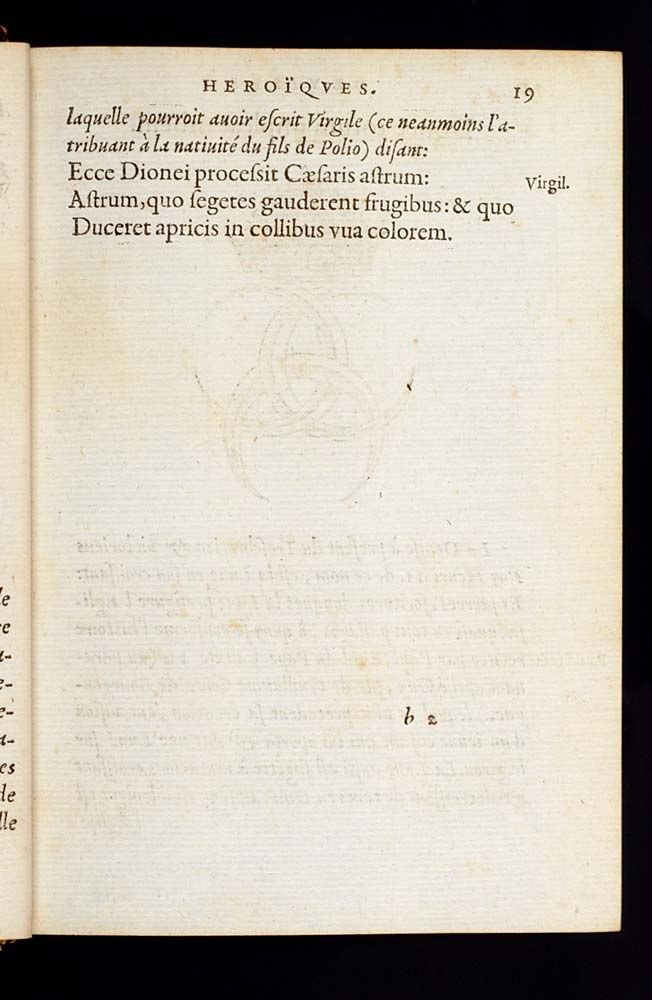 HEROÏQVES.
19
laquelle pourroit auoir eſcrit Virgile (ce neanmoins l'a-
tribuant à la natiuité du fils de Polio) diſant:
Ecce Dionei proceſsit Cæſaris aſtrum:
Virgil.
Aſtrum, quo ſegetes gauderent frugibus: & quo
Duceret apricis in collibus vua colorem.
b 2
le
re
a-
e-
e-
a-
es
de
lle